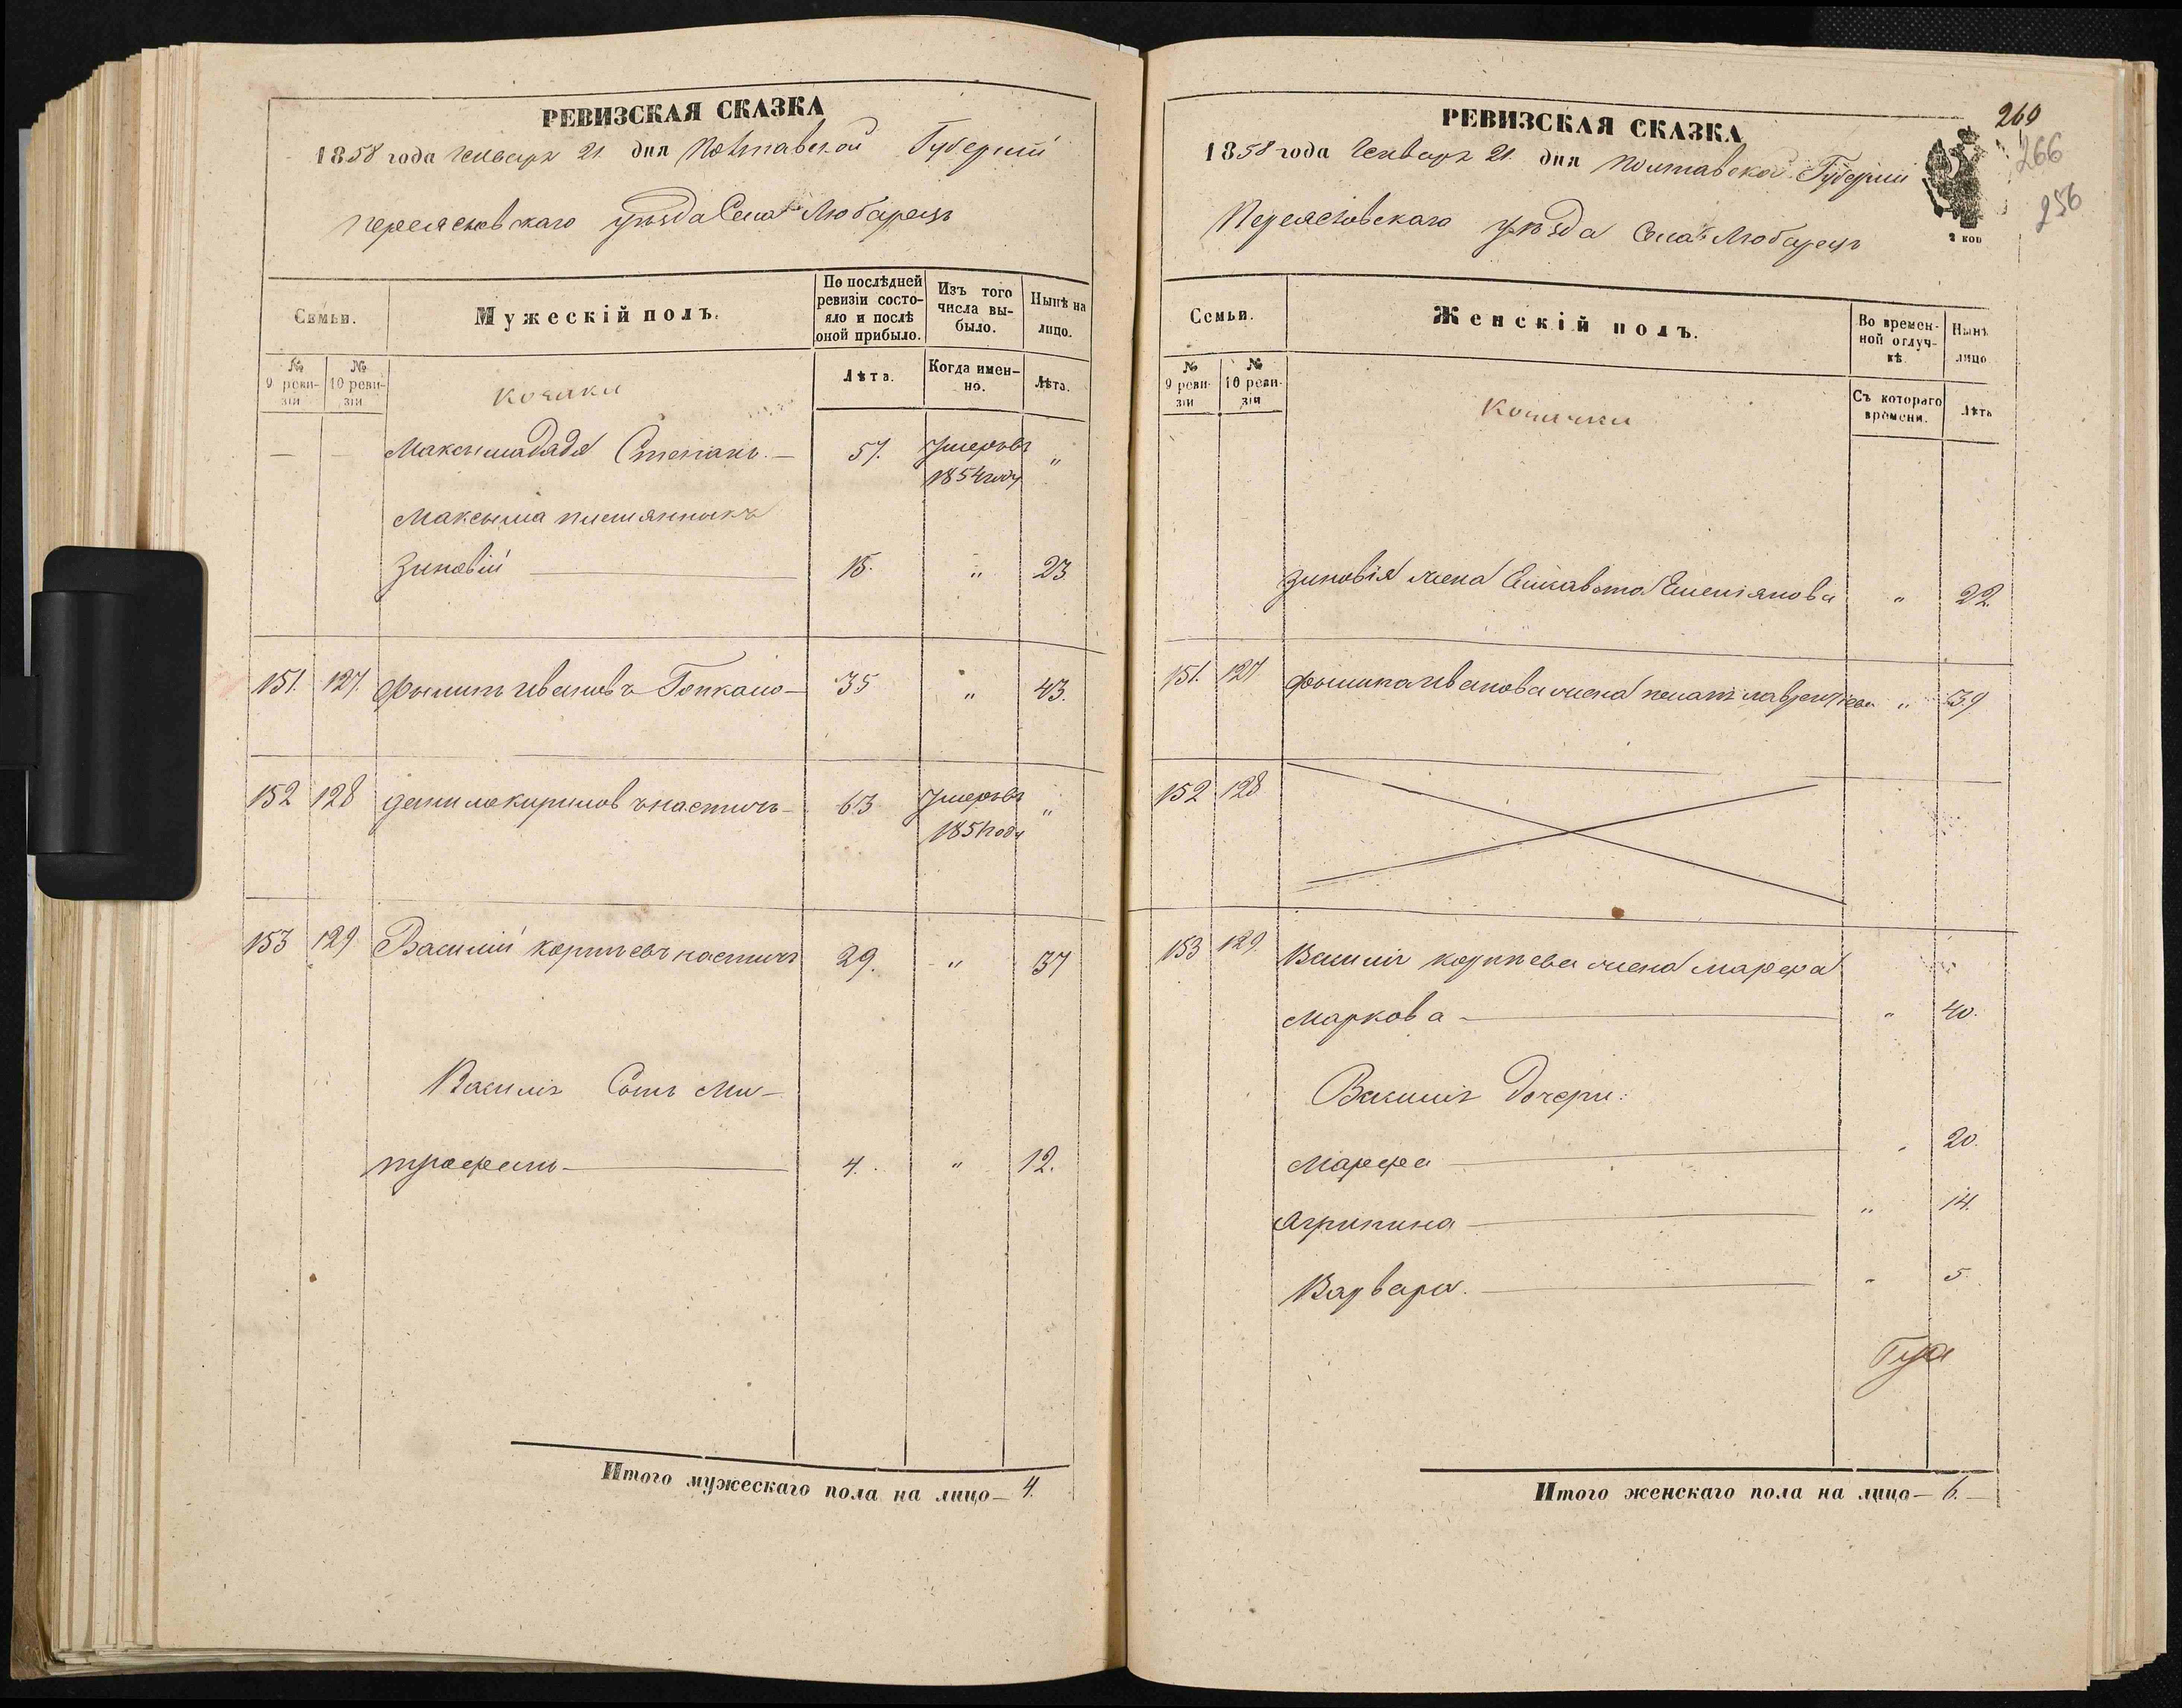 РЕВИЗСКАЯ СКАЗКА
1858 года Генваря 21 дня Полтавской Губерніи
Переясловскаго уѣзда Села Любарецъ
Семьи.
Мужескій полъ.
По послѣдней ревизіи состояло и послѣ оной прибыло.
Изъ того числа выбыло.
Нынѣ на лицо.
№ 9 ревизіи
№ 10 ревизіи
Лѣта.
Когда именно.
Лѣта.
Козаки
— — Максима дядя Степанъ — 57. Умеръ въ 1854 году „
Максыма племянныкъ
Зиновій — 15. „ 23
151. 127. Филипъ Ивановъ — 35 „ 43.
152 128 Данило Кириловъ Костичъ — 63 Умеръ въ „
1851 году
153 129 Василій Корніевъ Костичъ 29. „ 37
Василія Сынъ Ми-
трофанъ — 4. „ 12.
Итого мужескаго пола на лицо — 4.
РЕВИЗСКАЯ СКАЗКА
260
266
256
1858 года Генваря 21 дня Полтавской Губерніи
Переясловскаго уѣзда Села Любарецъ
2 коп
Семьи.
Женскій полъ.
Во временной отлучкѣ.
Нынѣ лицо
№ 9 ревизіи
№ 10 ревизіи
Съ котораго времени.
Лѣта
Козачки
Зиновія жена Елисавета Емеліянова „ 22.
151. 127 Филипа Иванова жена Пелагія Лаврентіева „ 39
152 128
153 129. Василія Корніева жена Марфа
Маркова — „ 40.
Василія дочери:
Марфа — „ 20.
Агрипина — „ 14.
Варвара. — „ 5.
Итого женскаго пола на лицо — 6. —